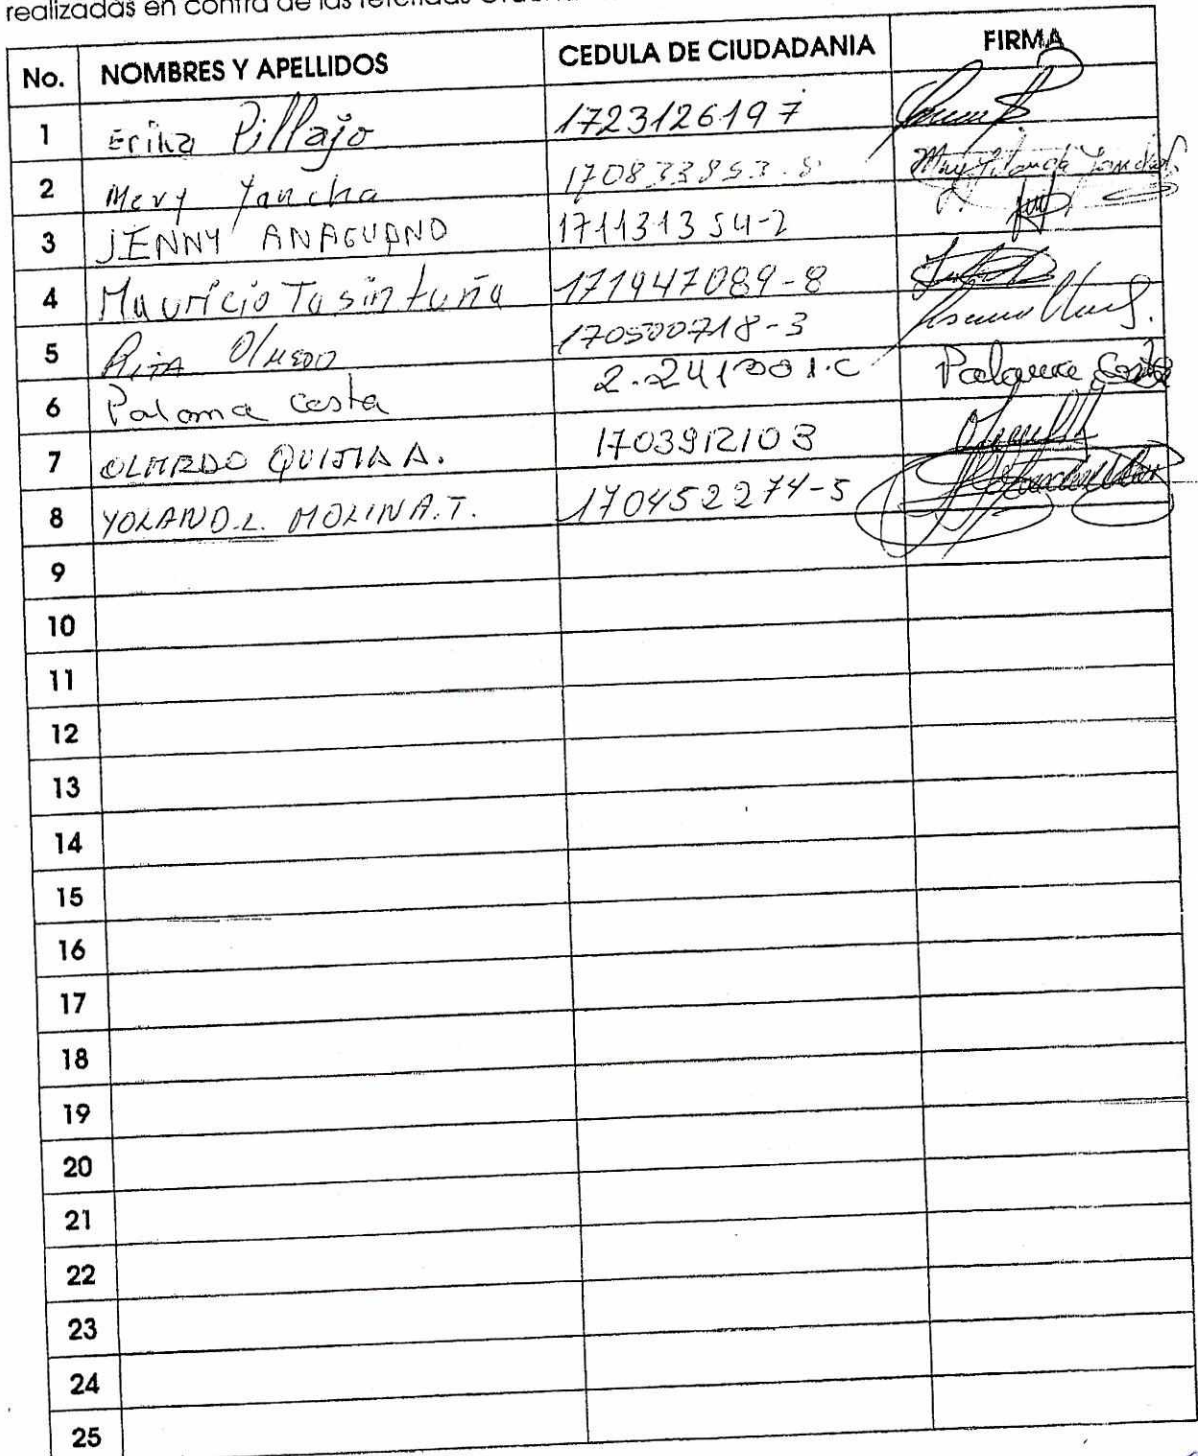 realizadas en contra de las referidas
No. NOMBRES Y APELLIDOS CEDULA DE CIUDADANIA FIRMA
1 Erika Pillajo 1723126197
2 Mery Yancha 170833853-8
3 JENNY ANAGUANO 171131354-2
4 Mauricio Tasintuña 171947089-8
5 RITA Olmedo 170500718-3
6 Paloma Costa Paloma Costa
7 QUIJIA A. 1703912103
8 YOLAND.L. MOLINA.T. 170452274-5
9
10
11
12
13
14
15
16
17
18
19
20
21
22
23
24
25